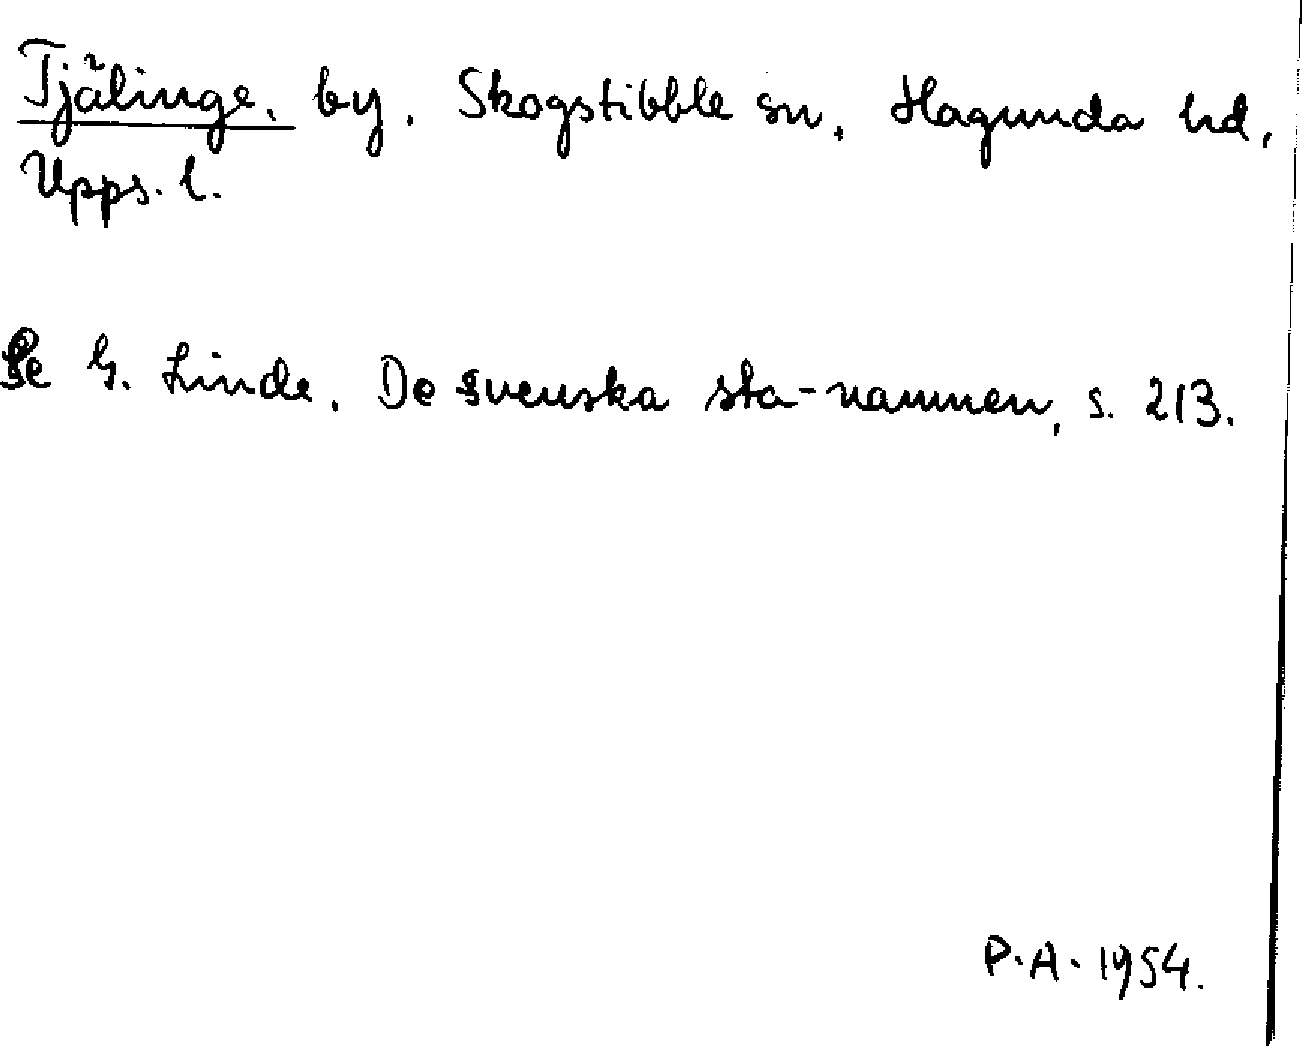 Tjälinge, by, Skogstibble sn, Hagunda hd,
Upps. l.
Se G. Linde, De svenska sta-namnen, s. 213.
P.A. 1954.